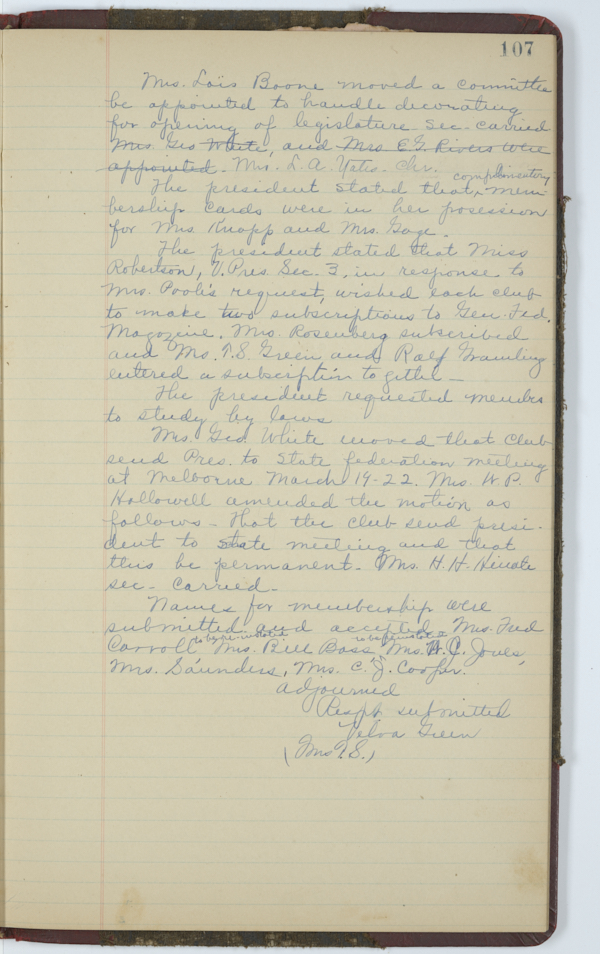 107
Mrs. Lois Boone moved a committee
be appointed to handle decorating
for opening of legislature sec- carried
Mrs. Geo White, and Mrs E.G. Rivers were
appointed. Mrs. L. A. Yates. Chr.
complimentary
The president stated that mem-
bership cards were in her posession
for Mrs Knopp and Mrs. Gage.
The president stated that Miss
Robertson, V. Pres. Sec. 3, in response to
Mrs. Poole's request, wished each club
to make two subscriptions to Gen. Fed.
Magazine. Mrs. Rosenberg subscribed
and Mrs. T.S. Green and Ralf Gramling
entered a subscription to gether —
The president requested members
to study by laws
Mrs. Geo. White moved that Club
send Pres. to State federation meeting
at Melborne March 19-22. Mrs. W P.
Hollowell amended the motion as
follows - That the club send presi-
dent to state meeting and that
this be permanent. Mrs. H. H.
sec- carried-
Names for membership were
submitted and accepted, Mrs. Fred
to be reinstated to be reinstated
Carroll Mrs. Bill Bass, Mrs. W. J. Jones,
Mrs. Saunders, Mrs. C. J. Cooper.
adjourned
Respt. submitted
Velva Green
(Mrs T.S.)